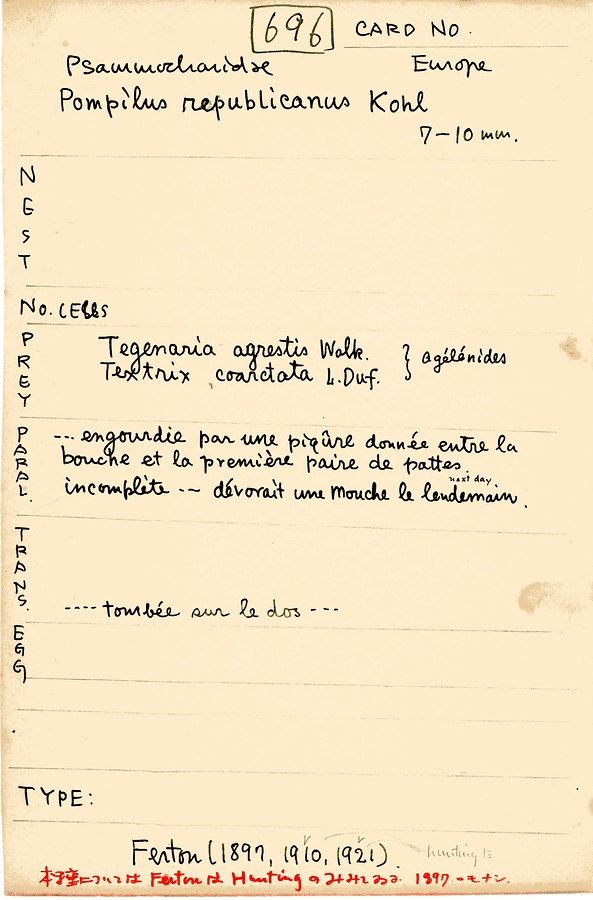 696 CARD NO.
Psammocharidae Europe
Pompilus republicanus Kohl
7-10 mm.
NEST
No. CELLS
PREY
Tegenaria agrestis Walk.
Textrix coarctata L.Duf. } agélénides
PARAL.
--- engourdie par une piqûre donnée entre la
bouche et la première paire de pattes.
next day
incomplète -- dévorait une mouche le lendemain.
TRANS.
---- tombée sur le dos ---
EGG
TYPE:
Ferton (1897, 1910, 1921). hunting
本種については Ferton は Hunting のみみておる 1897